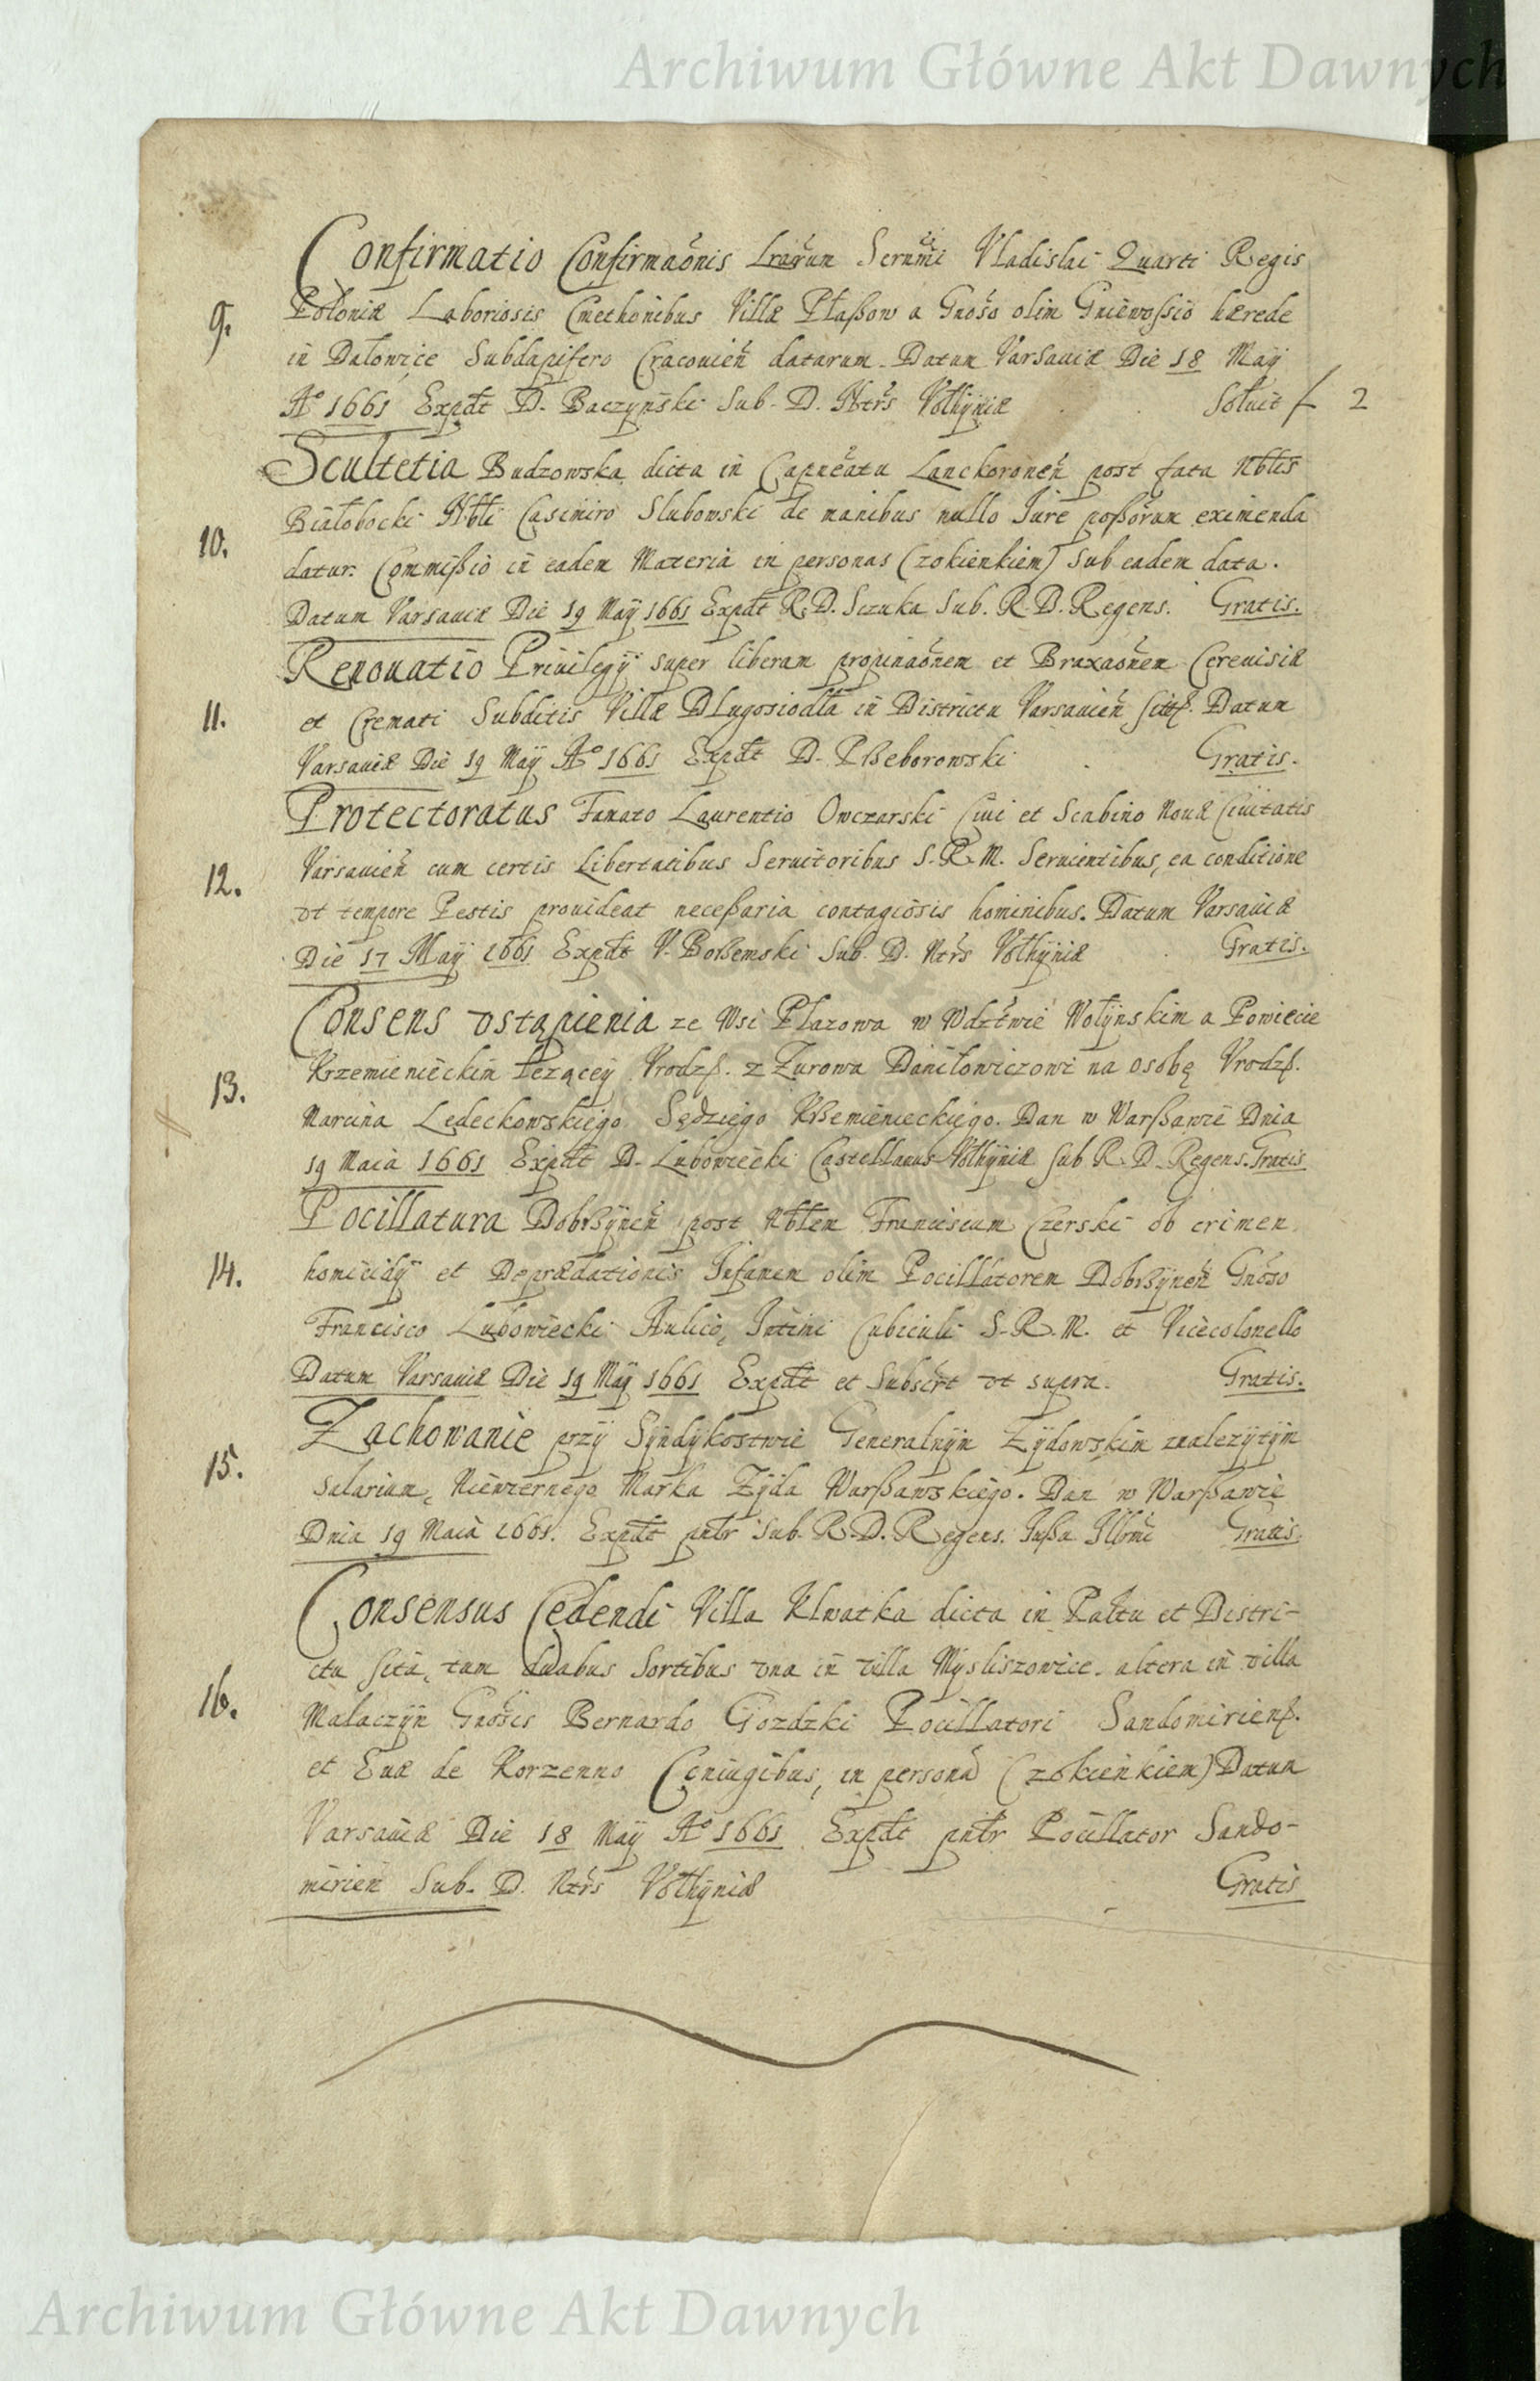 Archiwum Główne Akt Dawnych
Confirmatio Confirmaõnis Lrarum Sernmi Vladislai Quarti Regis
9. Poloniæ Laboriosis Cmethonibus Villæ Płaßow a Gnoso olim Gniewoßio hærede
in Dalowice Subdapifero Cracouien datarum. Datum Varsauiæ Die 18 Maÿ
Aº 1661 Expdt D. Baczynski Sub. D. Ntrs Vołhyniæ Soluit f 2
Scultetia Budzowska dicta in Capneatu Lanckoronen post fata Nblis
Białobocki Nbli Casimiro Slubowski de manibus nullo Jure poßorum eximenda
10. datur. Commißio in eadem Materia in personas (zokienkiem) sub eadem data.
Datum Varsauiæ Die 19 Maÿ 1661 Expdt R. D. Sczuka Sub. R. D. Regens. Gratis.
Renouatio Priuilegÿ super liberam propinaõnem et Braxaõnem Cereuisiæ
11. et Cremati Subditis Villæ Dlugosiodla in Districtu Varsauien sitæ. Datum
Varsauiæ Die 19 Maÿ Aº 1661 Expdt D. Pßeborowski Gratis.
Protectoratus Famato Laurentio Owczarski Ciui et Scabino Nouæ Ciuitatis
12. Varsauien cum certis Libertatibus Seruitoribus S. R. M. Seruientibus, ea conditione
vt tempore Pestis prouideat neceßaria contagiosis hominibus. Datum Varsauiæ
Die 17 Maÿ 1661 Expdt V. Borßemski Sub D. Ntrs Vołhyniæ Gratis.
Consens vstąpienia ze Wsi Płazowa w Wdztwie Wołynskim a Powiecie
13. Krzemienieckim lezącey Vrodzß. z Zurowa Daniłowiczowi na osobę Vrodzß.
Marcina Ledechowskiego Sędziego Kßemienieckiego. Dan w Warßawie Dnia
19 Maia 1661 Expdt D. Lubowiecki Castellanus Vołhyniæ sub R. D. Regens. Gratis
Pocillatura Dobrßynen post Nblem Franciscum Czerski ob crimen
14. homicidÿ et Deprædationis Infamem olim Pocillatorem Dobrßynen Gnoso
Francisco Lubowiecki Aulico, Intimi Cubiculi S. R. M. et Vicecolonello
Datum Varsauiæ Die 19 Maÿ 1661 Expdt et Subscrt vt supra. Gratis.
Zachowanie przÿ Sÿndÿkostwie Generalnÿm Zÿdowskim znalezÿtÿm
15. Salarium, Niewiernego Marka Zÿda Warßawskiego. Dan w Warßawie
Dnia 19 Maia 1661. Expdt pntr Sub. R. D. Regens. Jußu Illmi Gratis.
Consensus Cedendi Villa Klwatka dicta in Paltu et Distri-
ctu sita, tum duabus Sortibus vna in villa Mysliszowice altera in villa
16. Malaczÿn Gnosis Bernardo Gozdzki Pocillatori Sandomirienß.
et Euæ de Korzenno Coniugibus, in persona (zokienkiem) Datum
Varsauiæ Die 18 Maÿ Aº 1661 Expdt pntr Pocillator Sando-
mirien Sub. D. Ntrs Vołhyniæ Gratis
Archiwum Główne Akt Dawnych